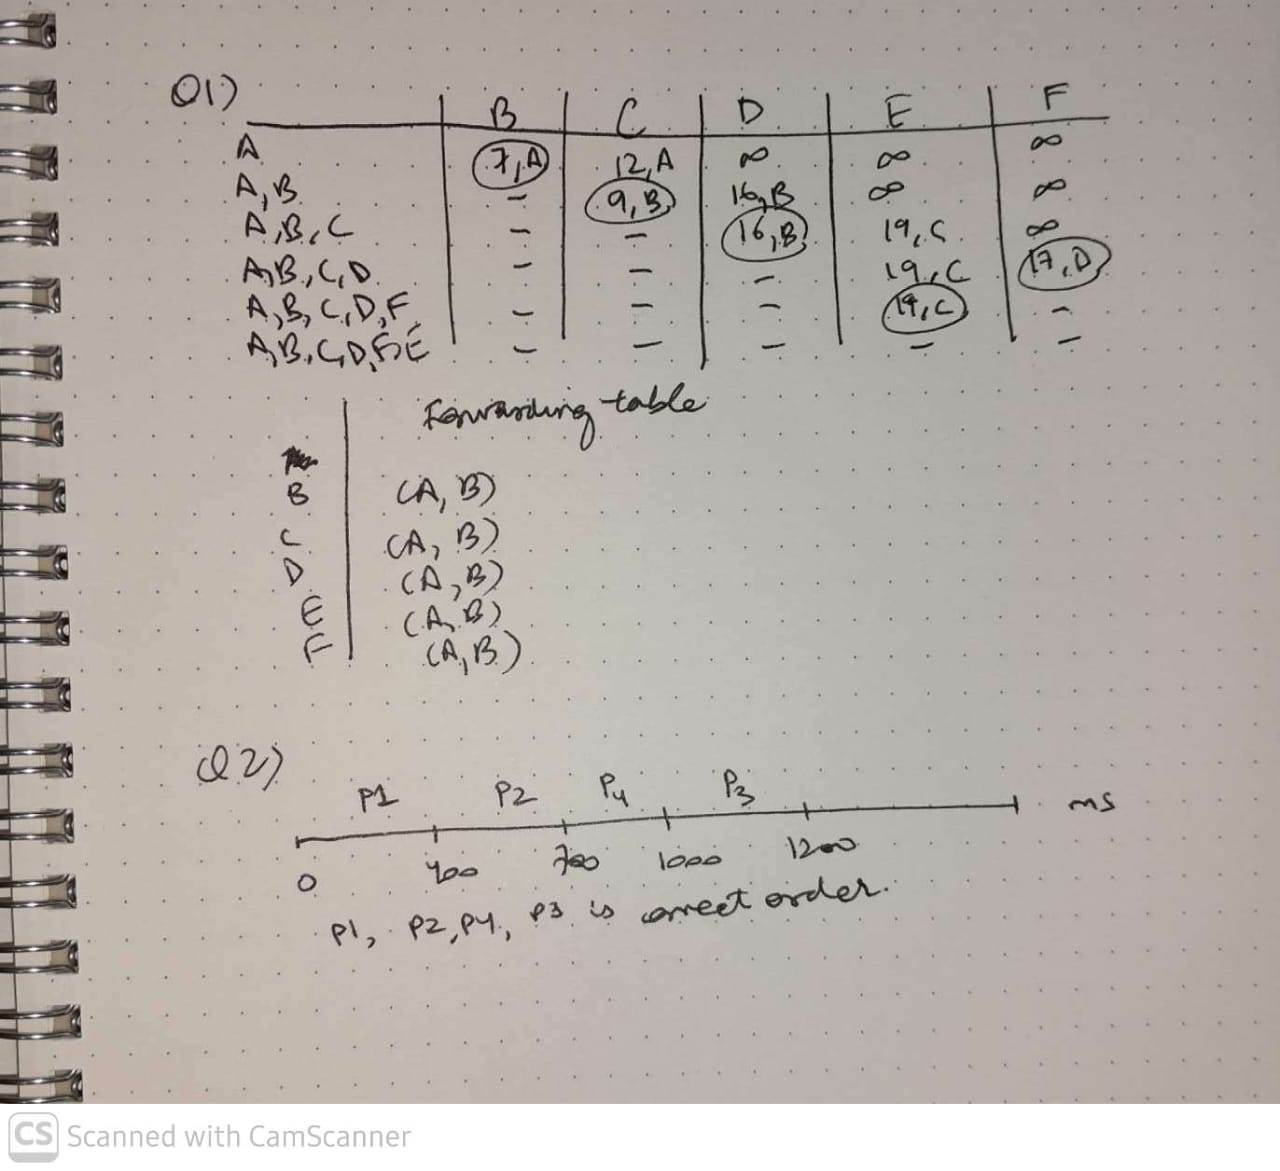 Q1)
B C D E F
A 7,A 12,A ∞ ∞ ∞
A,B – 9,B 16,B ∞ ∞
A,B,C – – 16,B 19,C ∞
A,B,C,D – – – 19,C 17,D
A,B,C,D,F – – – 19,C –
A,B,C,D,F,E – – – – –
Forwarding table
B (A, B)
C (A, B)
D (A,B)
E (A,B)
F (A,B)
Q2)
P1 P2 P4 P3 ms
0 400 700 1000 1200
P1, P2, P4, P3 is correct order.
CS Scanned with CamScanner